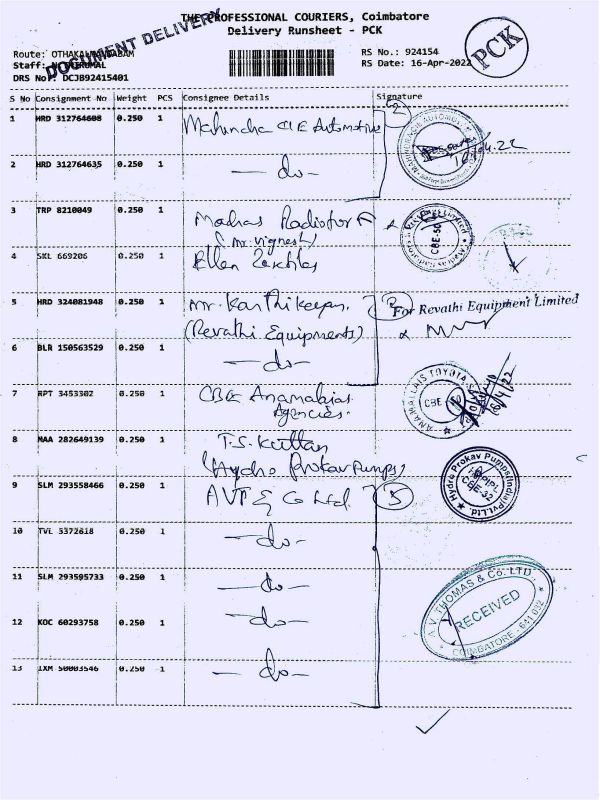 THE PROFESSIONAL COURIERS, Coimbatore
Delivery Runsheet - PCK
DOCUMENT DELIVERY
PCK
Route: OTHAKALMANDABAM
RS No.: 924154
Staff:
RS Date: 16-Apr-2022
DRS No: DCJB92415401
S No Consignment No Weight PCS Consignee Details Signature
1 HRD 312764608 0.250 1 Mahindra CIE Automotive 2
2 HRD 312764635 0.250 1 -do-
3 TRP 8210049 0.250 1 Madras Radiator
(Mr. Vignesh)
CBE-50
4 SKL 669206 0.250 1 Ellen
5 HRD 324081948 0.250 1 Mr. Karthikeyan. 2
(Revathi Equipments)
For Revathi Equipment Limited
6 BLR 150563529 0.250 1 -do-
7 RPT 3453302 0.250 1 CBE Anamalais
Agencies.
ANAMALLAIS TOYOTA
CBE - 50
8 MAA 282649139 0.250 1 T.S. Kuttan
(Hydro Prokav Pumps)
Hydro Prokav Pumps(India)Pvt.Ltd.
HPPIPL
CBE-32
9 SLM 293558466 0.250 1 AVT & Co Ltd. 5
10 TVL 3372618 0.250 1 -do-
11 SLM 293595733 0.250 1 -do-
12 KOC 60293758 0.250 1 -do-
13 IXM 50003546 0.250 1 -do-
A.V. THOMAS & Co. LTD.,
RECEIVED
COIMBATORE - 641 032